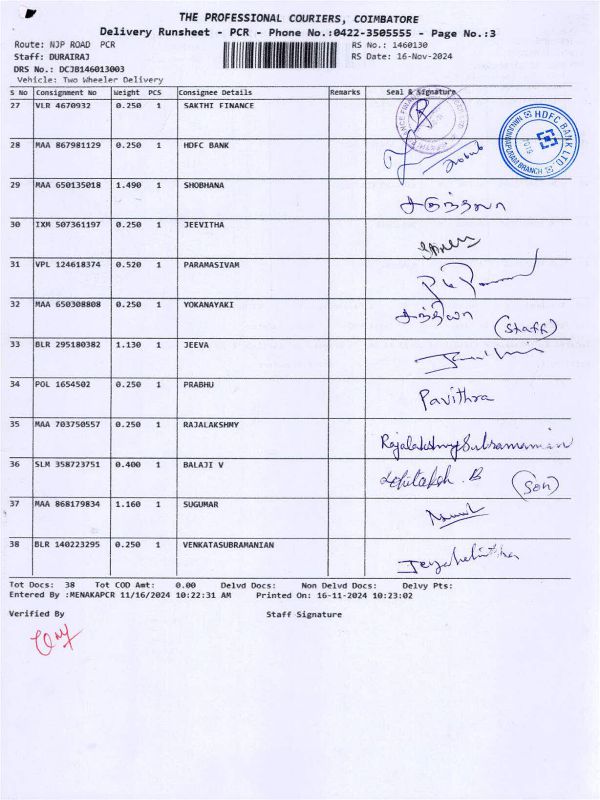 THE PROFESSIONAL COURIERS, COIMBATORE
Delivery Runsheet - PCR - Phone No.:0422-3505555 - Page No.:3
Route: NJP ROAD PCR
RS No.: 1460130
Staff: DURAIRAJ
RS Date: 16-Nov-2024
DRS No.: DCJB146013003
Vehicle: Two Wheeler Delivery
S No Consignment No Weight PCS Consignee Details Remarks Seal & Signature
27 VLR 4670932 0.250 1 SAKTHI FINANCE
28 MAA 867981129 0.250 1 HDFC BANK
HDFC BANK LTD
BRANCH
29 MAA 650135018 1.490 1 SHOBHANA
30 IXM 507361197 0.250 1 JEEVITHA
31 VPL 124618374 0.520 1 PARAMASIVAM
32 MAA 650308808 0.250 1 YOKANAYAKI
(Staff)
33 BLR 295180382 1.130 1 JEEVA
34 POL 1654502 0.250 1 PRABHU
Pavithra
35 MAA 703750557 0.250 1 RAJALAKSHMY
Rajalakshmy Subramanian
36 SLM 358723751 0.400 1 BALAJI V
(Son)
37 MAA 868179834 1.160 1 SUGUMAR
38 BLR 140223295 0.250 1 VENKATASUBRAMANIAN
Tot Docs: 38 Tot COD Amt: 0.00 Delvd Docs: Non Delvd Docs: Delvy Pts:
Entered By :MENAKAPCR 11/16/2024 10:22:31 AM Printed On: 16-11-2024 10:23:02
Verified By Staff Signature